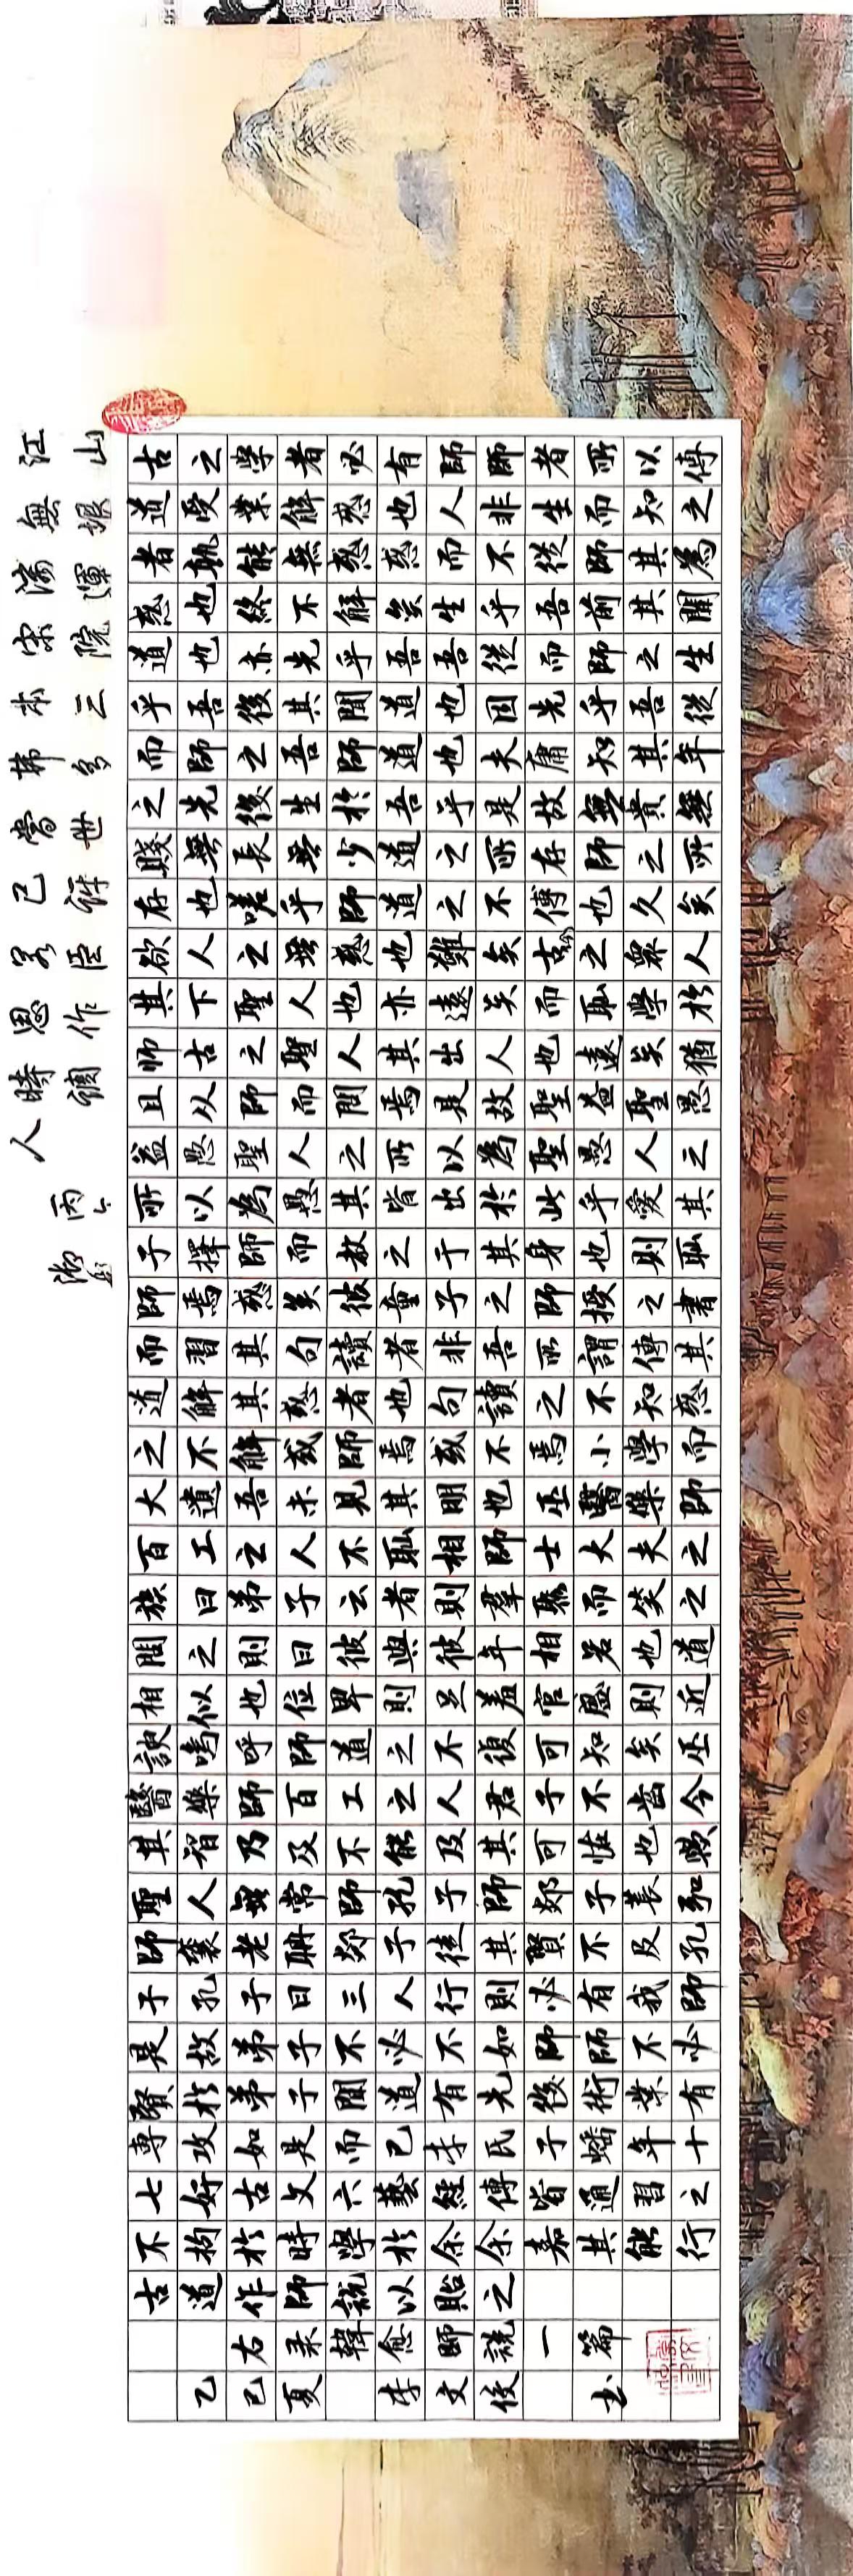 古之學者必有師師者所以傳
道受業解惑也人非生而知之
者孰能無惑惑而不從師其為
惑也終不解矣生乎吾前其聞
道也亦先乎吾吾從而師之生
乎吾後其聞道也因先乎吾從
而師之吾師道也夫庸知其年
之先後生於吾乎是故無貴無
賤無長無少道之所存師之所
存也嗟乎師道之不傳也久矣
欲人之無惑也難矣古之眾人
其下聖人也亦遠矣而恥學於
師古之聖人其出人也遠矣猶
且從師而問焉是故聖益聖愚
益愚聖人之所以為聖愚人之
所以為愚其皆出於此乎愛其
子擇師而教之于其身也則恥
師焉惑矣彼童子之師授之書
而習其句讀者非吾所謂傳其
道解其惑者也句讀之不知惑
之不解或師焉或不焉小學而
大遺吾未見其明也巫醫樂師
百工之人不恥相師士大夫之
族曰弟子云者則羣聚而笑之
問之則曰彼與彼年相若也道
相似也位卑則足羞官盛則近
諛嗚呼師道之不復可知矣巫
醫樂師百工之人君子不齒今
其智乃反不能及其可怪也歟
聖人無常師孔子師郯子萇弘
師襄老聃郯子徒其賢不及孔
子孔子曰三人行則必有我師
是故弟子不必不如師師不必
賢於弟子聞道有先後術業有
專攻如是而已李氏子蟠年十
七好古文六藝經傳皆通習之
不拘於時學於余余嘉其能行
古道作師說以貽之
右录韓愈師說一篇
乙巳夏 李文俊 书